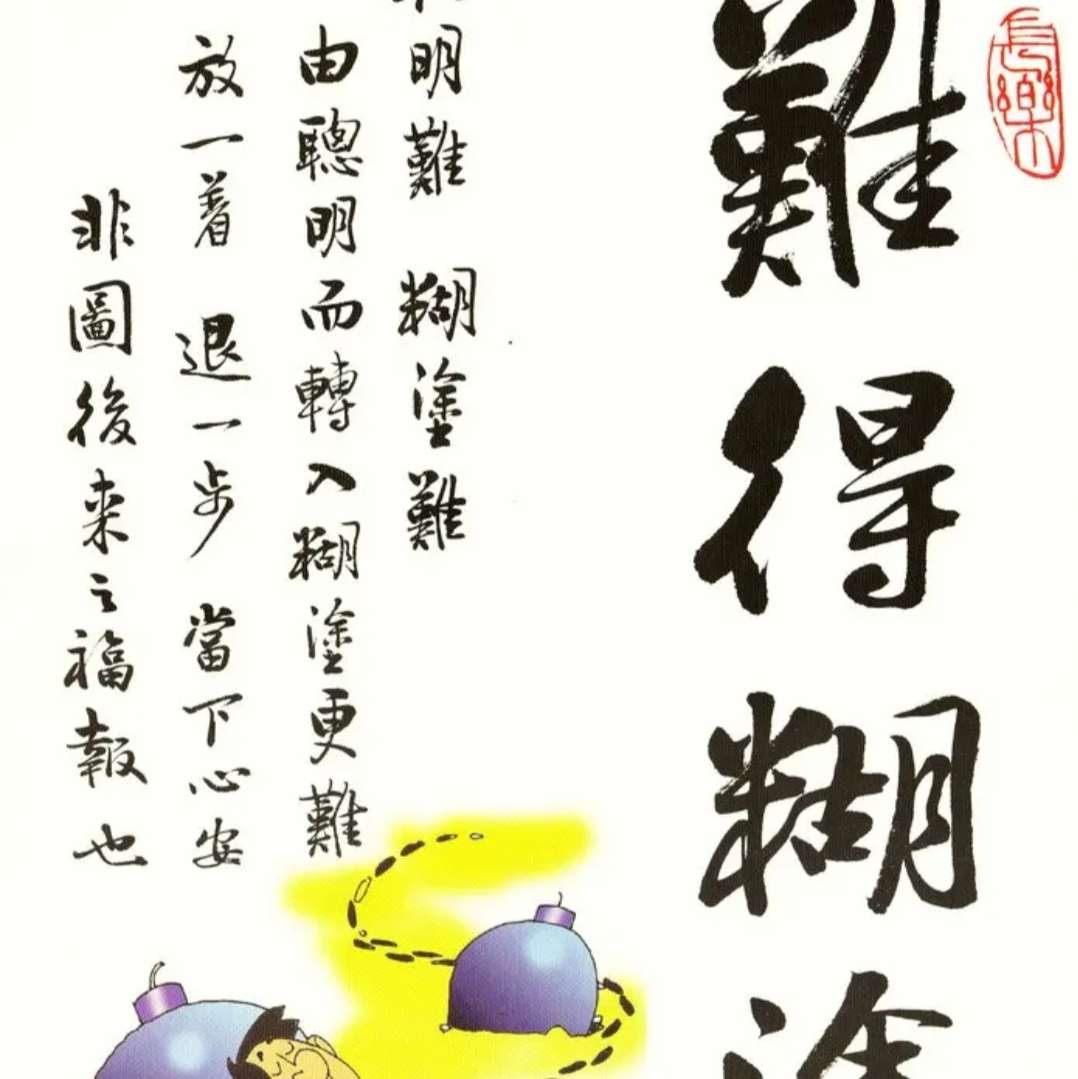 長樂
難得糊塗
明難 糊塗難
由聰明而轉入糊塗更難
放一着 退一步 當下心安
非圖後来之福報也